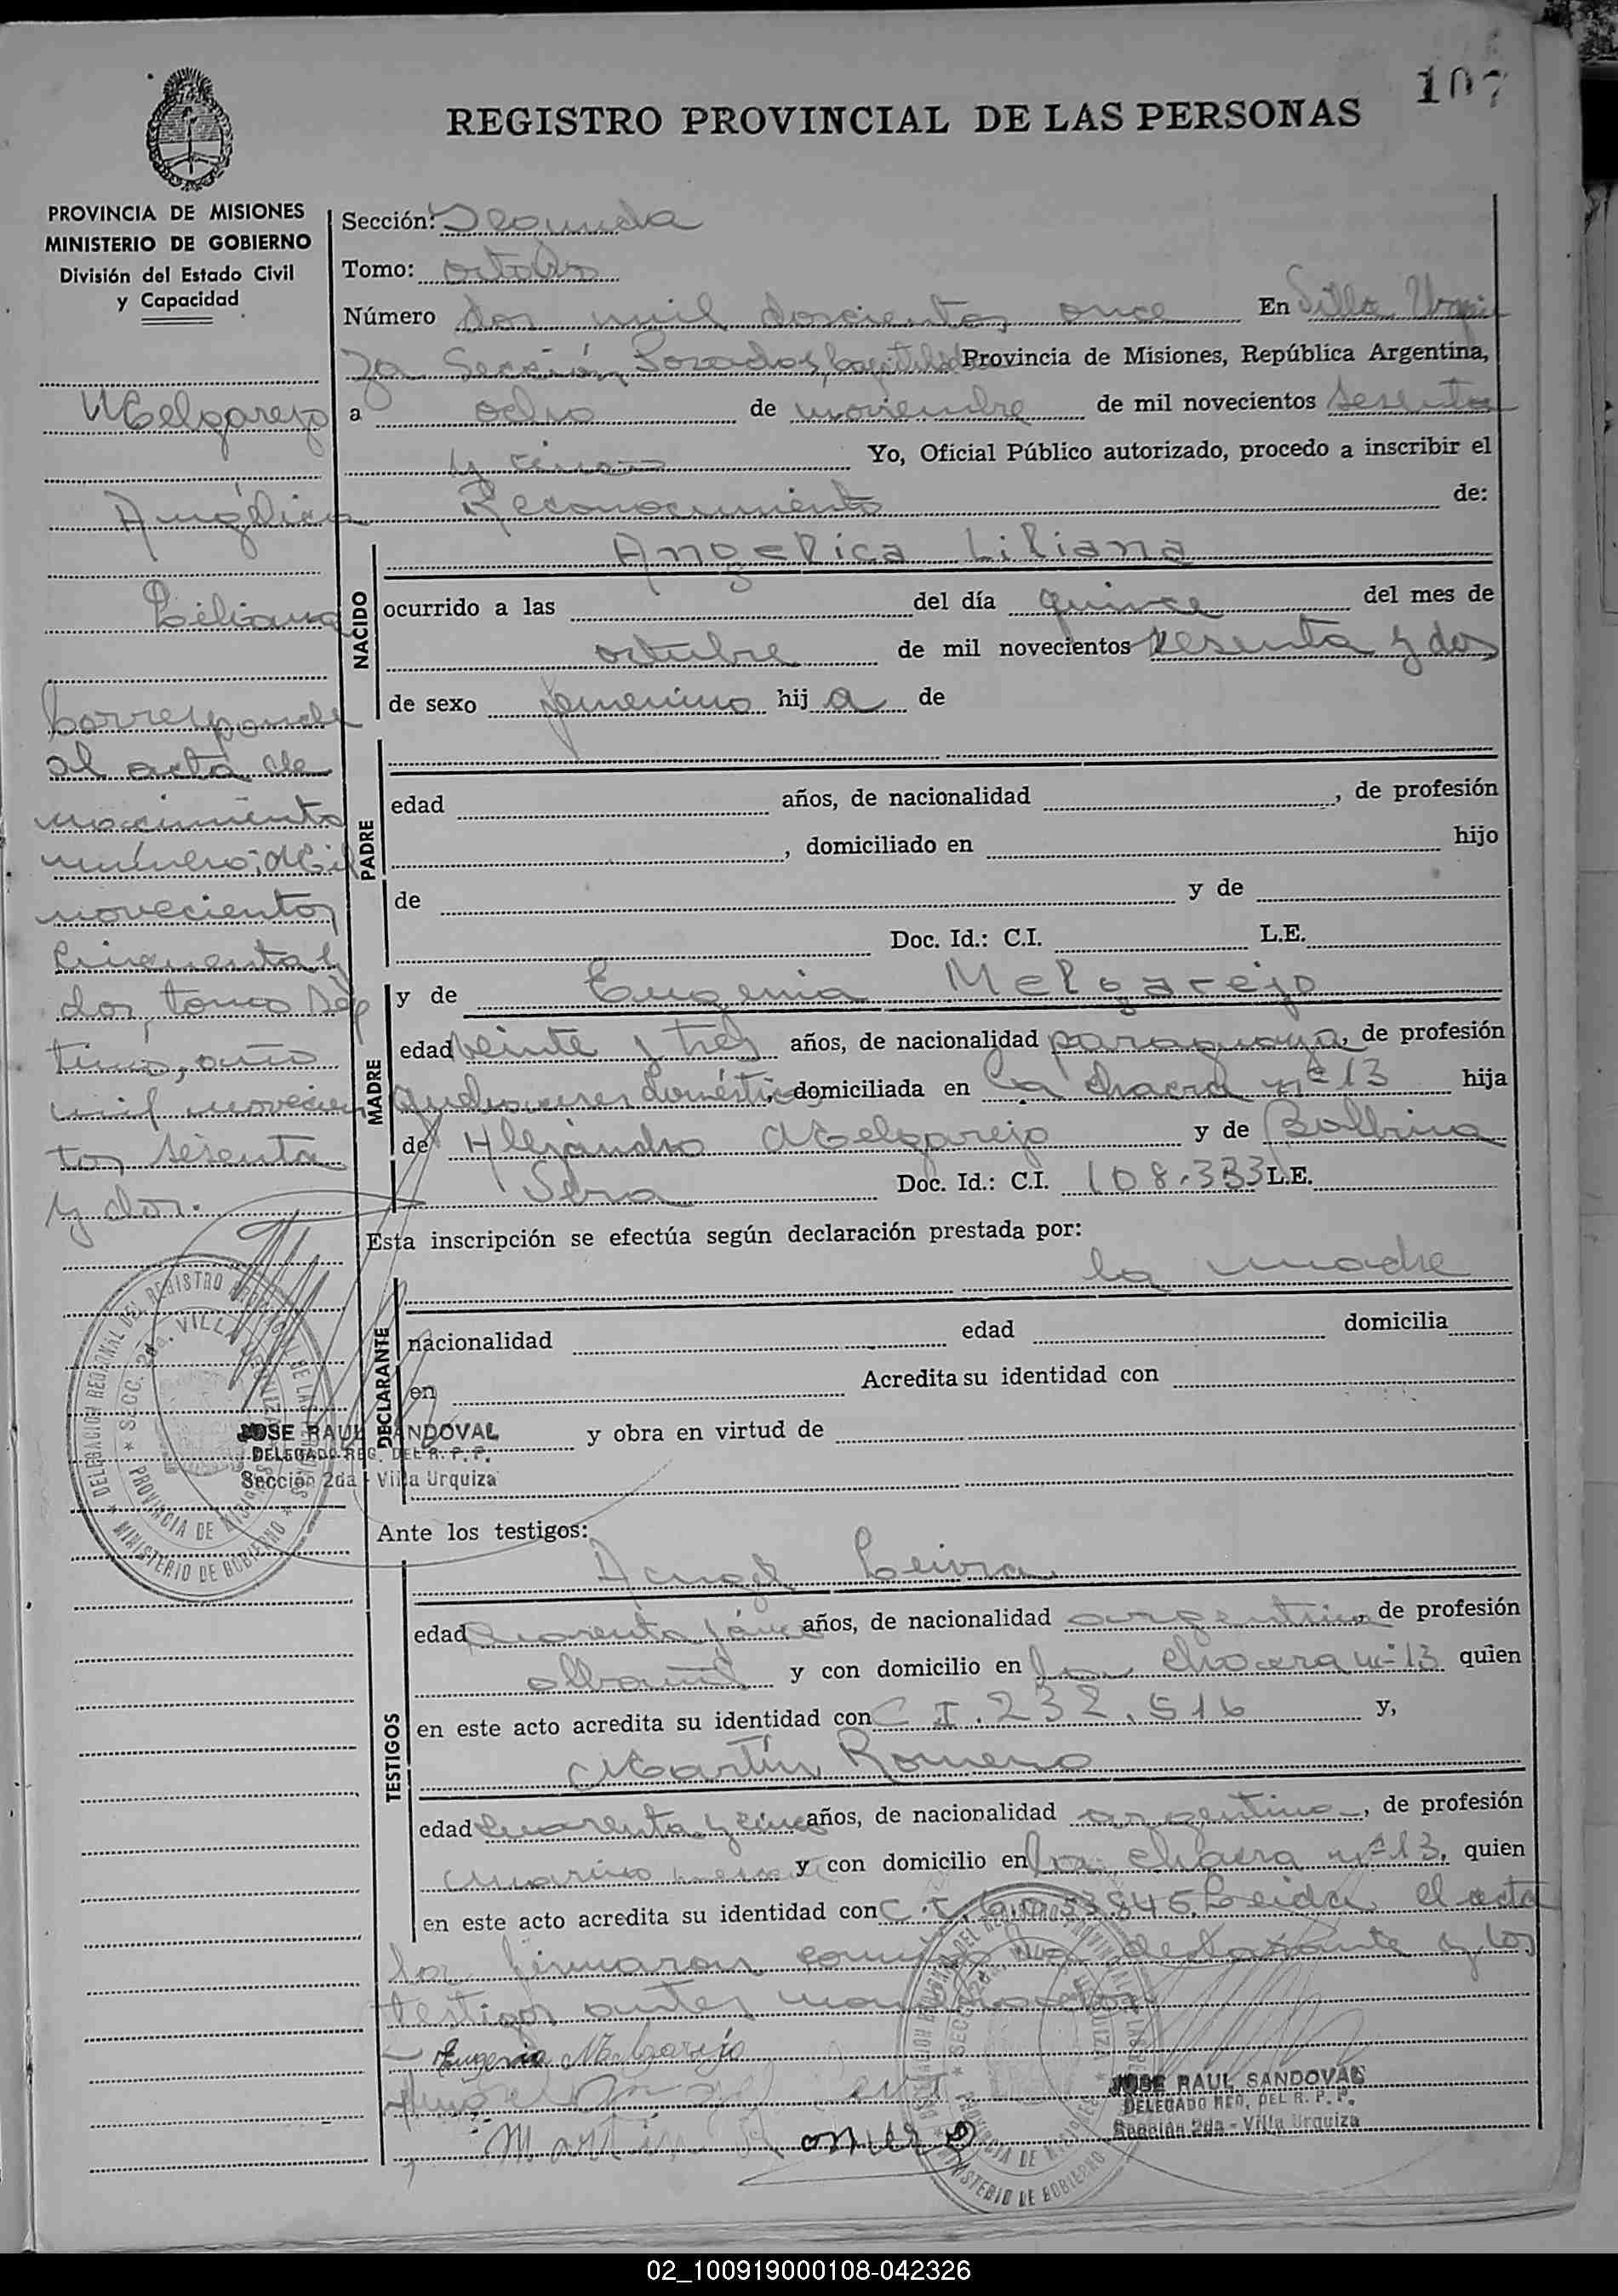 107
REGISTRO PROVINCIAL DE LAS PERSONAS
PROVINCIA DE MISIONES
MINISTERIO DE GOBIERNO
División del Estado Civil
y Capacidad
Melgarejo
Angélica
Liliana
Corresponde
al acta de
nacimiento
número: Mil
novecientos
cincuenta y
dos, tomo Sép
timo, año
mil novecien
tos sesenta
y dos.
Sección: Segunda
Tomo: octavo
Número dos mil doscientos once En Villa Urqui
za Sección, Posadas, Capital de Provincia de Misiones, República Argentina,
a ocho de noviembre de mil novecientos sesenta
y cinco Yo, Oficial Público autorizado, procedo a inscribir el
Reconocimiento de:
NACIDO
Angelica Liliana
ocurrido a las del día quince del mes de
octubre de mil novecientos sesenta y dos
de sexo femenino hij a de
PADRE
edad años, de nacionalidad , de profesión
, domiciliado en hijo
de y de
Doc. Id.: C.I. L.E.
MADRE
y de Eugenia Melgarejo
edad veinte y tres años, de nacionalidad paraguaya, de profesión
quehaceres domésticos, domiciliada en la chacra nº 13 hija
de Alejandro Melgarejo y de Balbina
Sera Doc. Id.: C.I. 108.333 L.E.
Esta inscripción se efectúa según declaración prestada por:
la madre
DECLARANTE
nacionalidad edad domicilia
en Acredita su identidad con
y obra en virtud de
Ante los testigos:
TESTIGOS
Angel Leiva
edad cuarenta y años, de nacionalidad argentina, de profesión
albañil y con domicilio en la chacra nº 13 quien
en este acto acredita su identidad con C I. 232.516 y,
Martín Romero
edad cuarenta y cinco años, de nacionalidad argentina, de profesión
marino y con domicilio en la chacra nº 13, quien
en este acto acredita su identidad con C.I. Leida el acta
la firmaron conmigo la declarante y los
testigos antes mencionados
Eugenia Melgarejo
Angel
Martin Romero
DELEGACION REGIONAL DEL REGISTRO PROVINCIAL DE LAS PERSONAS
SECC. 2da. VILLA URQUIZA
PROVINCIA DE MISIONES
MINISTERIO DE GOBIERNO
JOSE RAUL SANDOVAL
DELEGADO REG. DEL R. P. P.
Sección 2da - Villa Urquiza
DELEGACION REGIONAL DEL REGISTRO PROVINCIAL DE LAS PERSONAS
SECC. 2da. VILLA URQUIZA
PROVINCIA DE MISIONES
MINISTERIO DE GOBIERNO
JOSE RAUL SANDOVAL
DELEGADO REG. DEL R. P. P.
Sección 2da - Villa Urquiza
02_100919000108-042326